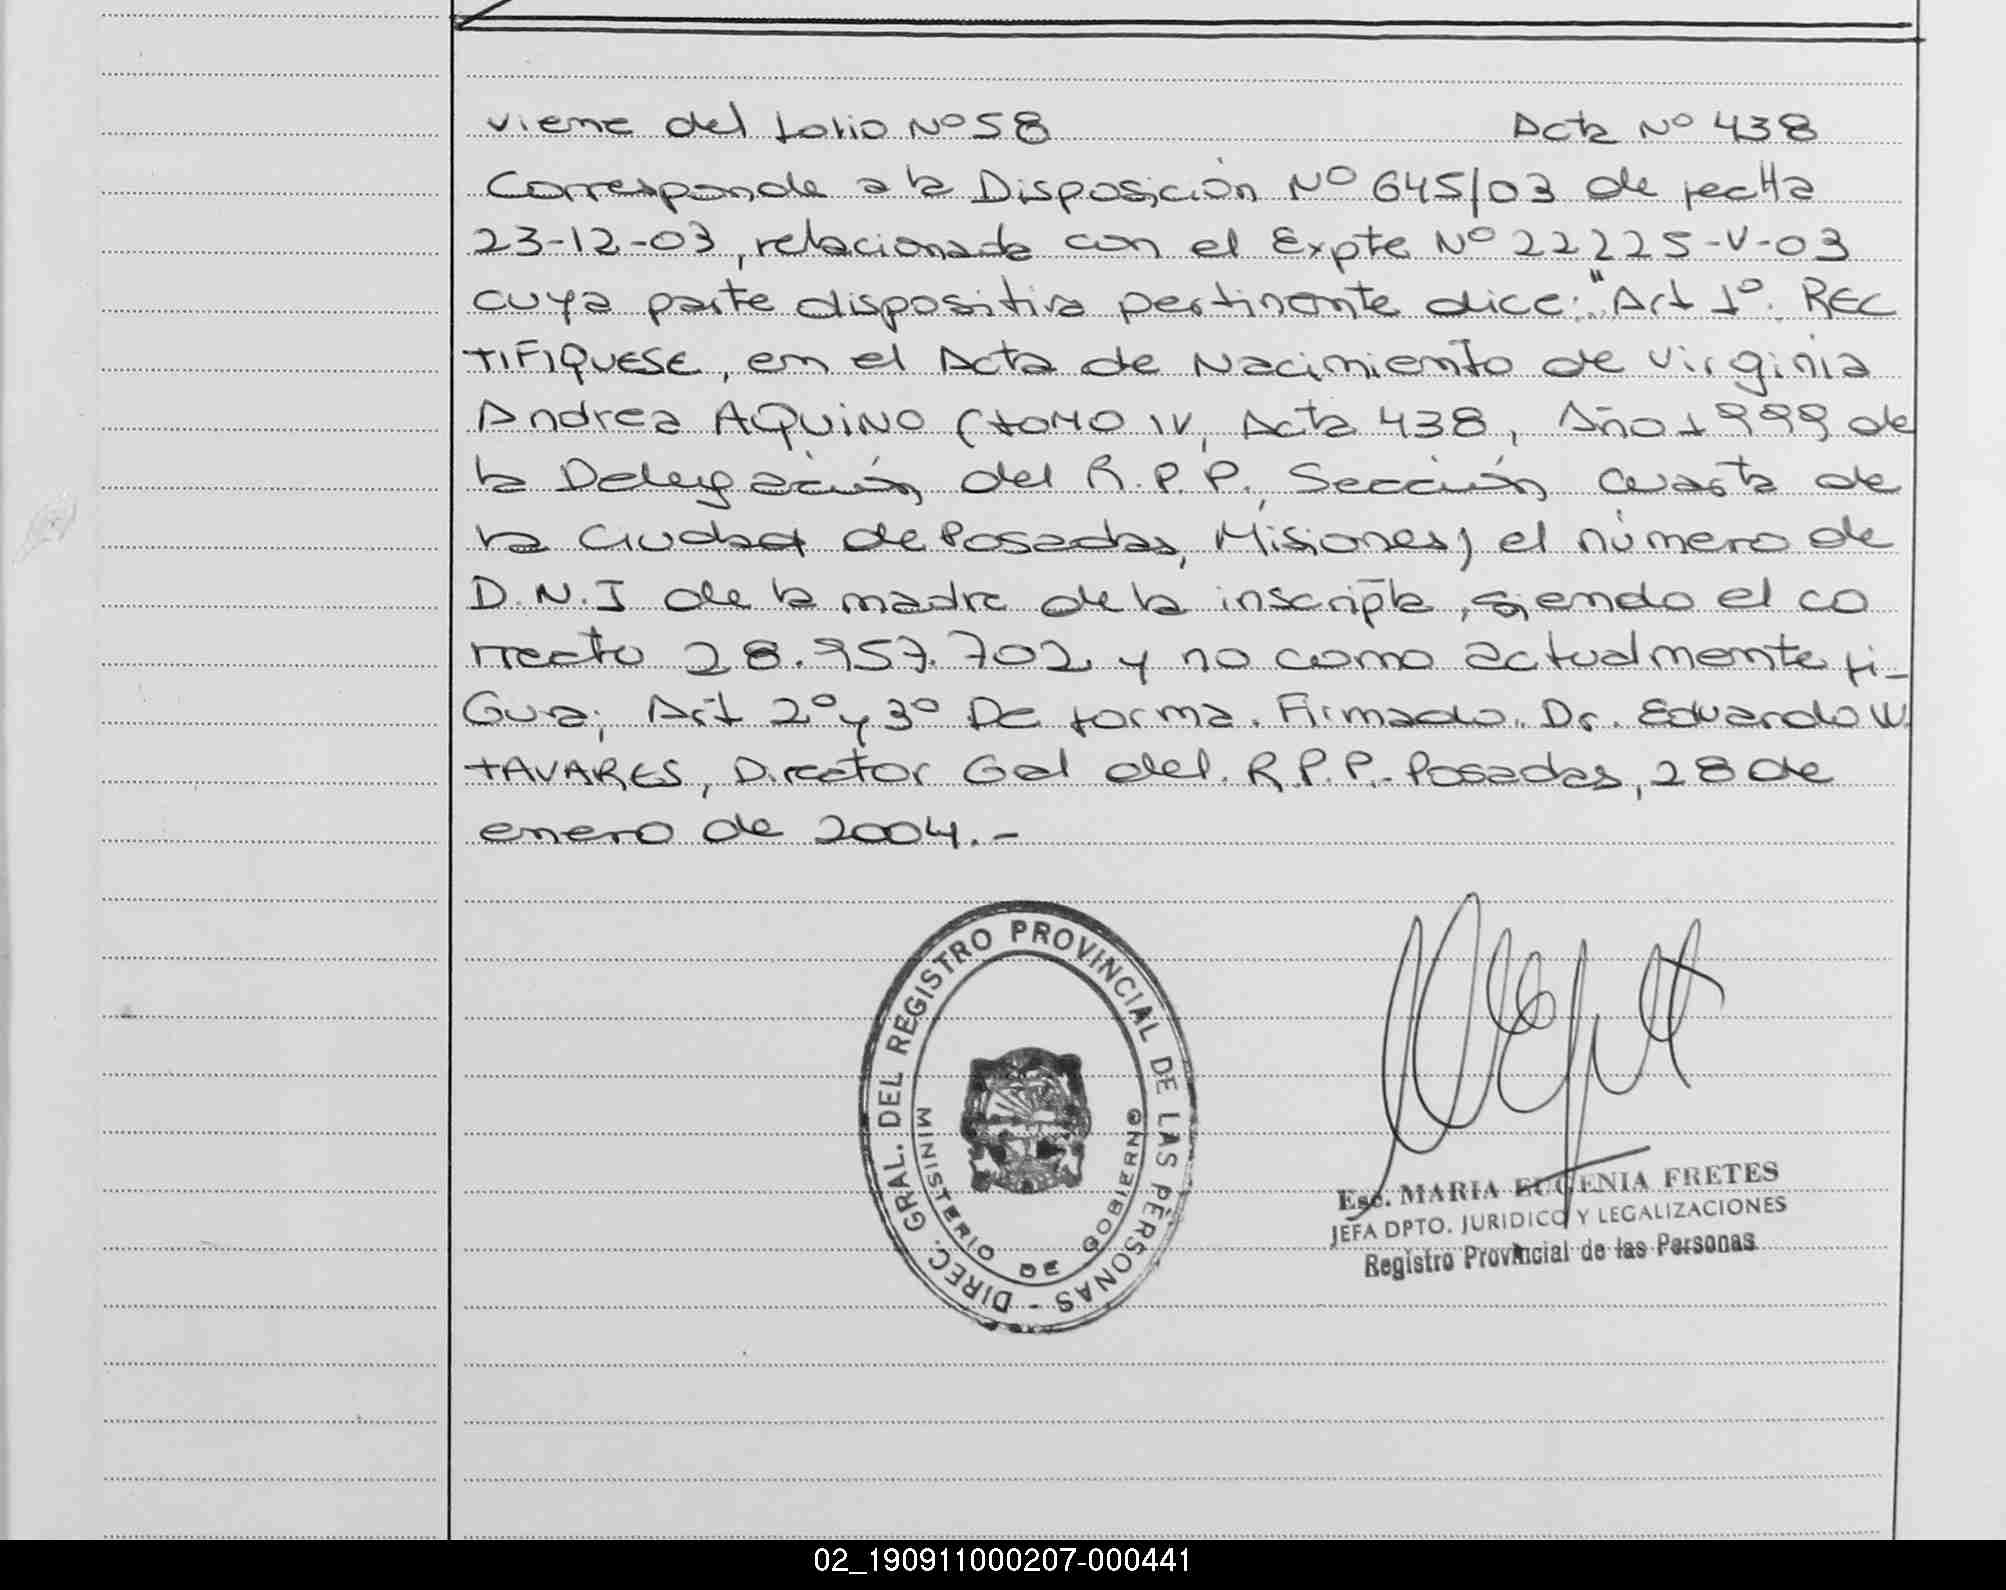 viene del folio Nº 58 Acta Nº 438
Corresponde a la Disposición Nº 645/03 de fecha
23-12-03, relacionada con el Expte Nº 22225-V-03
cuya parte dispositiva pertinente dice: "Art 1º. REC
TIFIQUESE, en el Acta de Nacimiento de Virginia
Andrea AQUINO (tomo IV, Acta 438, Año 1999 de
la Delegación del R.P.P., Sección Cuarta de
la Ciudad de Posadas, Misiones) el número de
D.N.I de la madre de la inscripta, siendo el co
rrecto 28.957.702 y no como actualmente fi-
Gura; Art 2º y 3º De forma. Firmado. Dr. Eduardo W.
TAVARES, Director Gal del R.P.P. Posadas, 28 de
enero de 2004.-
DIREC. GRAL. DEL REGISTRO PROVINCIAL DE LAS PERSONAS -
MINISTERIO DE GOBIERNO
Esc. MARIA EUGENIA FRETES
JEFA DPTO. JURIDICO Y LEGALIZACIONES
Registro Provincial de las Personas
02_190911000207-000441